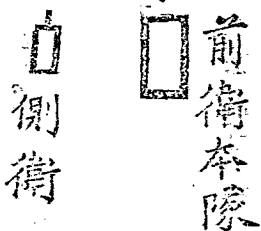 前衛本隊
側衛